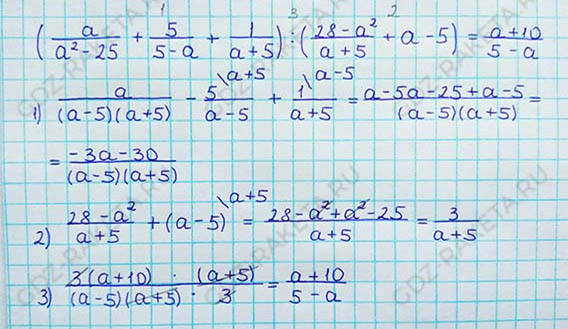 1 3 2
(a/(a²-25) + 5/(5-a) + 1/(a+5)) : ((28-a²)/(a+5) + a-5) = (a+10)/(5-a)
1) a/((a-5)(a+5)) - 5\a+5/(a-5) + 1\a-5/(a+5) = (a-5a-25+a-5)/((a-5)(a+5)) =
= (-3a-30)/((a-5)(a+5))
2) (28-a²)/(a+5) + (a-5)\a+5 = (28-a²+a²-25)/(a+5) = 3/(a+5)
3) (3(a+10) · (a+5))/((a-5)(a+5) · 3) = (a+10)/(5-a)
GDZ-RAKETA.RU